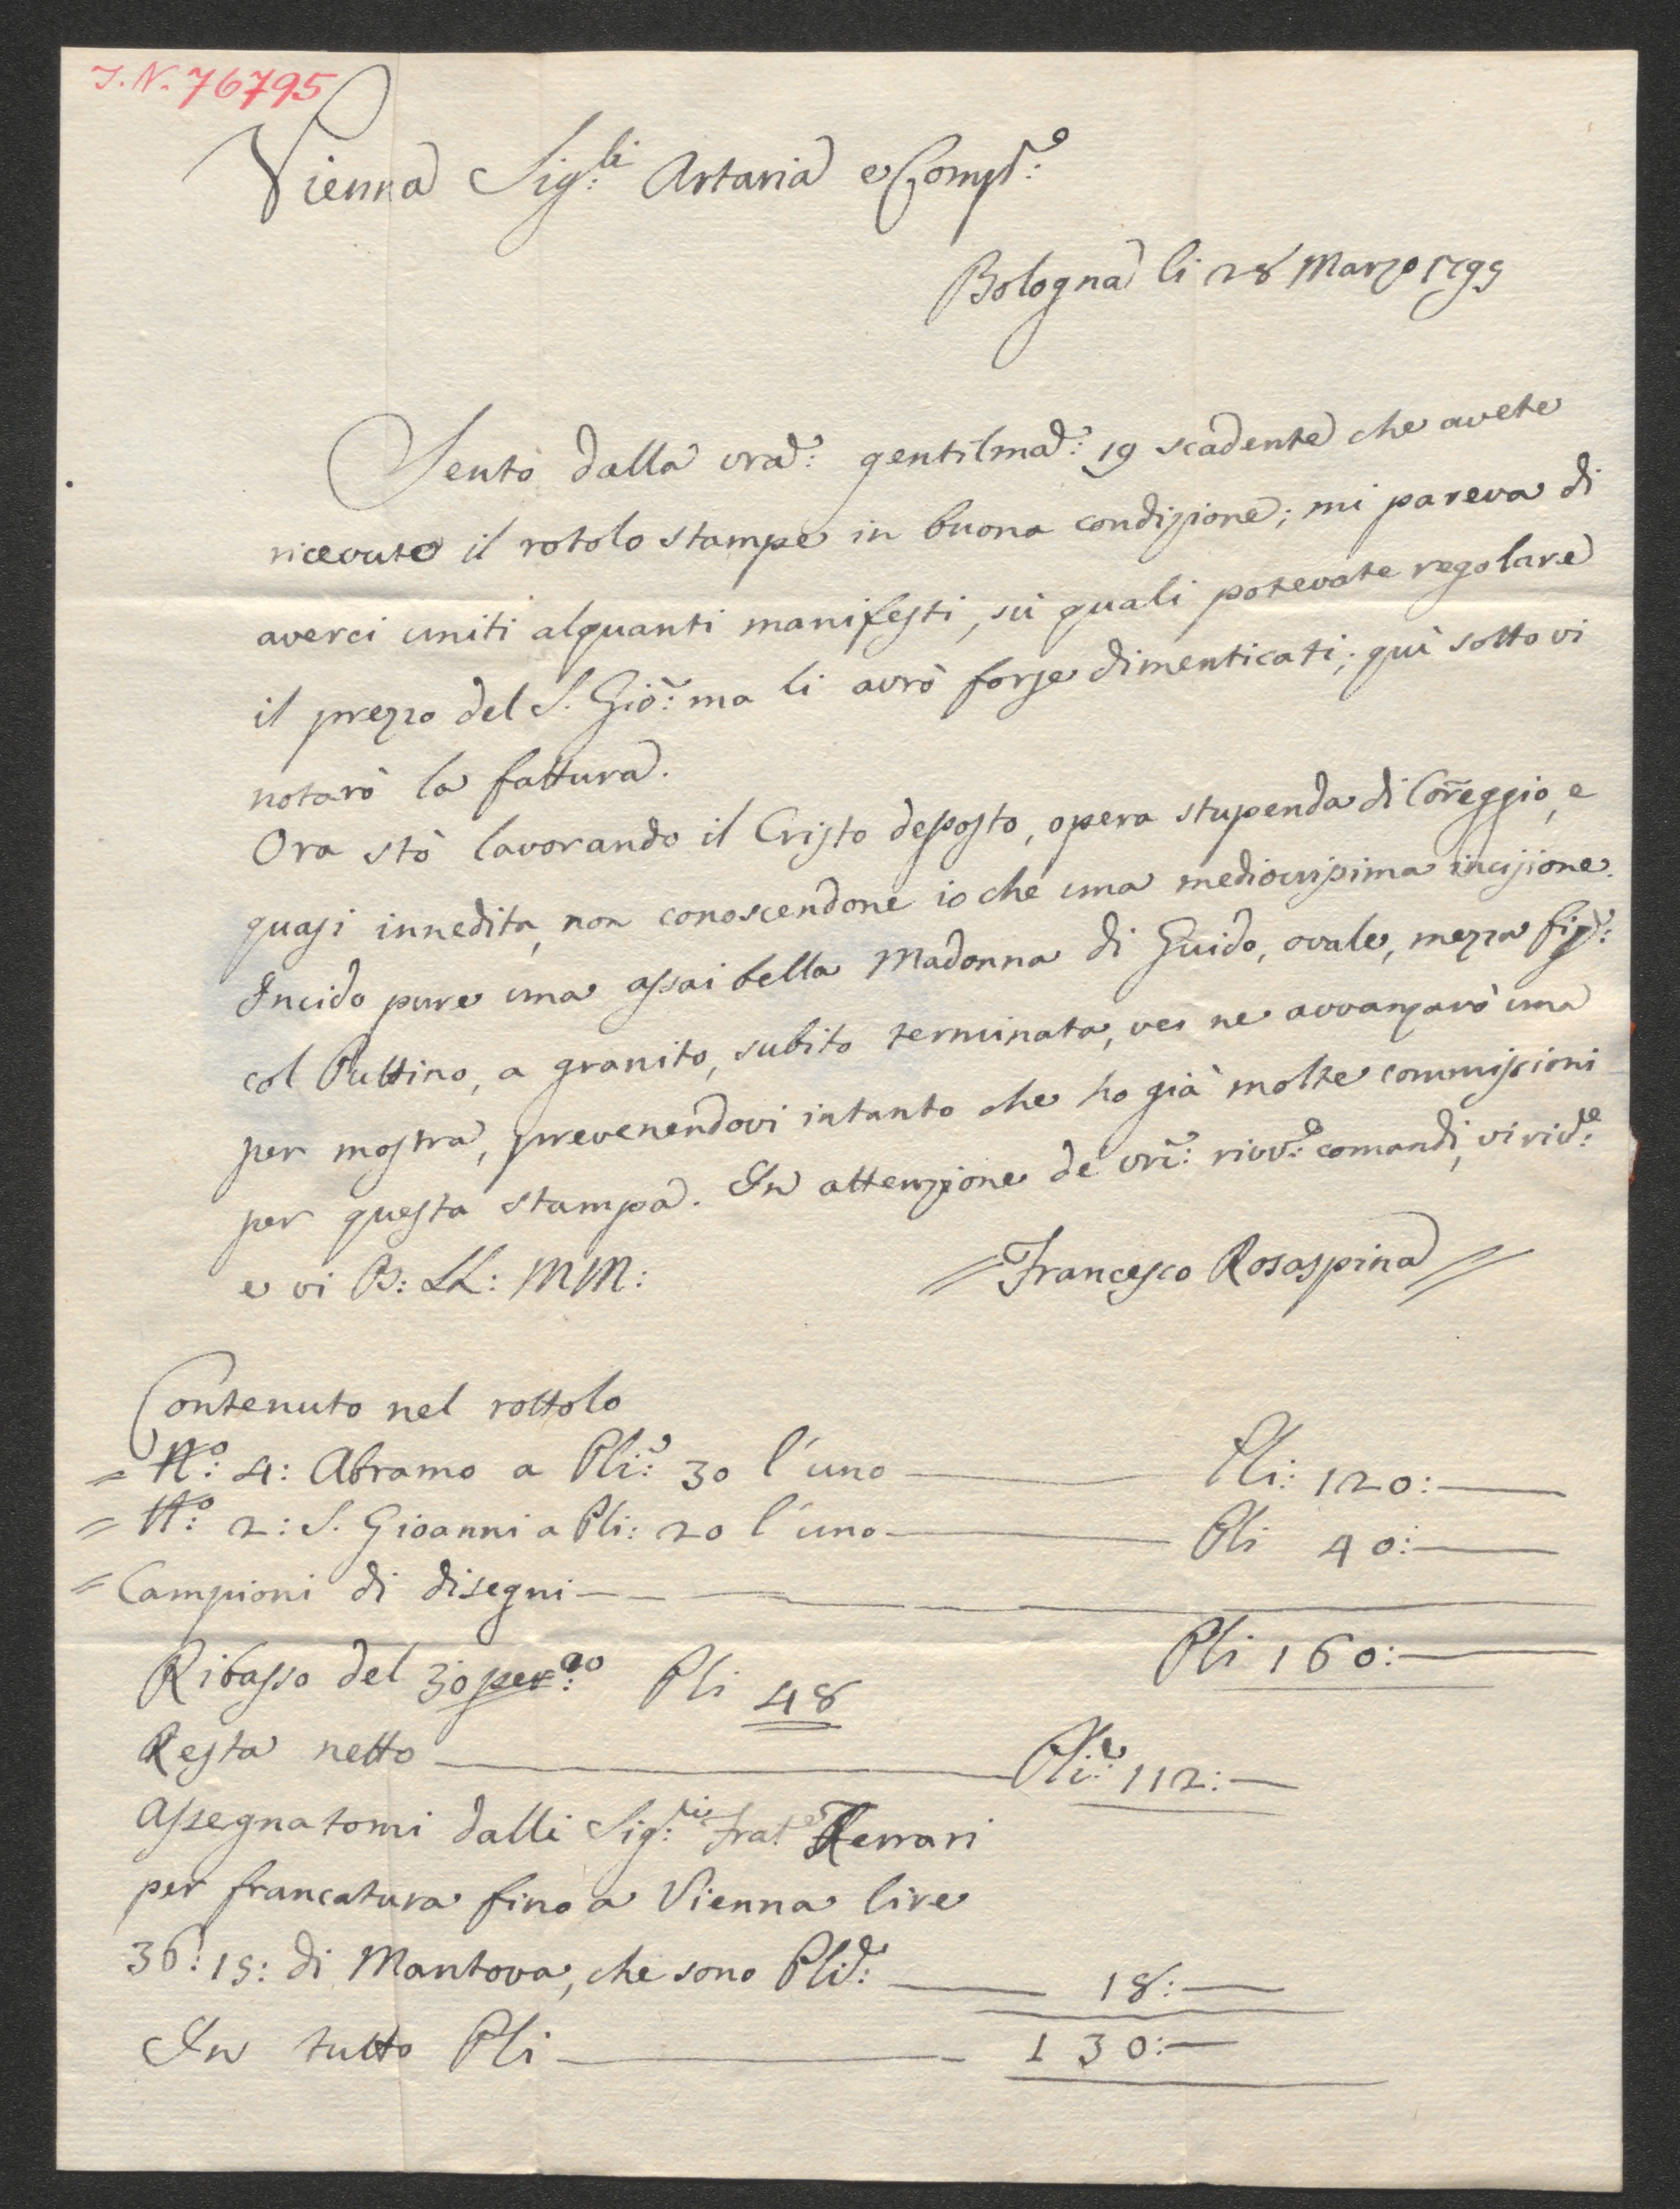 I. N. 76795
Vienna Sig:li Artaria e Comp:e
Bologna li 28 Marzo 1795
Sento dalla vra: gentilma: 19 scadente che avete
ricevuto il rotolo stampe in buona condizione; mi pareva di
averci uniti alquanti manifesti, sù quali potevate regolare
il prezzo del S. Gio: ma li avrò forse dimenticati; quì sotto vi
notarò la fattura.
Ora stò lavorando il Cristo deposto, opera stupenda di Coreggio, e
quasi innedita, non conoscendone io che una mediocrissima incisione.
Incido pure una assai bella Madonna di Guido, ovale, mezza fig:
col Puttino, a granito, subito terminata, ve ne avvanzarò una
per mostra, prevenendovi intanto che ho già molte commissioni
per questa stampa. In attenzione de vri: riv:i comandi, vi riv:e
e vi B: LL: MM:
= Francesco Rosaspina =
Contenuto nel rottolo
= N:o 4: Abramo a Pli: 30 l'uno — Pli: 120: —
= N:o 2: S. Gioanni a Pli: 20 l'uno — Pli 40: —
= Campioni di disegni —
Pli 160: —
Ribasso del 30 per:00 Pli 48
Resta netto — Pli: 112: —
Assegnatomi dalli Sig:ri Frat:e Ferrari
per francatura fino a Vienna lire
36: 15: di Mantova, che sono Pli: — 18: —
In tutto Pli — 130: —